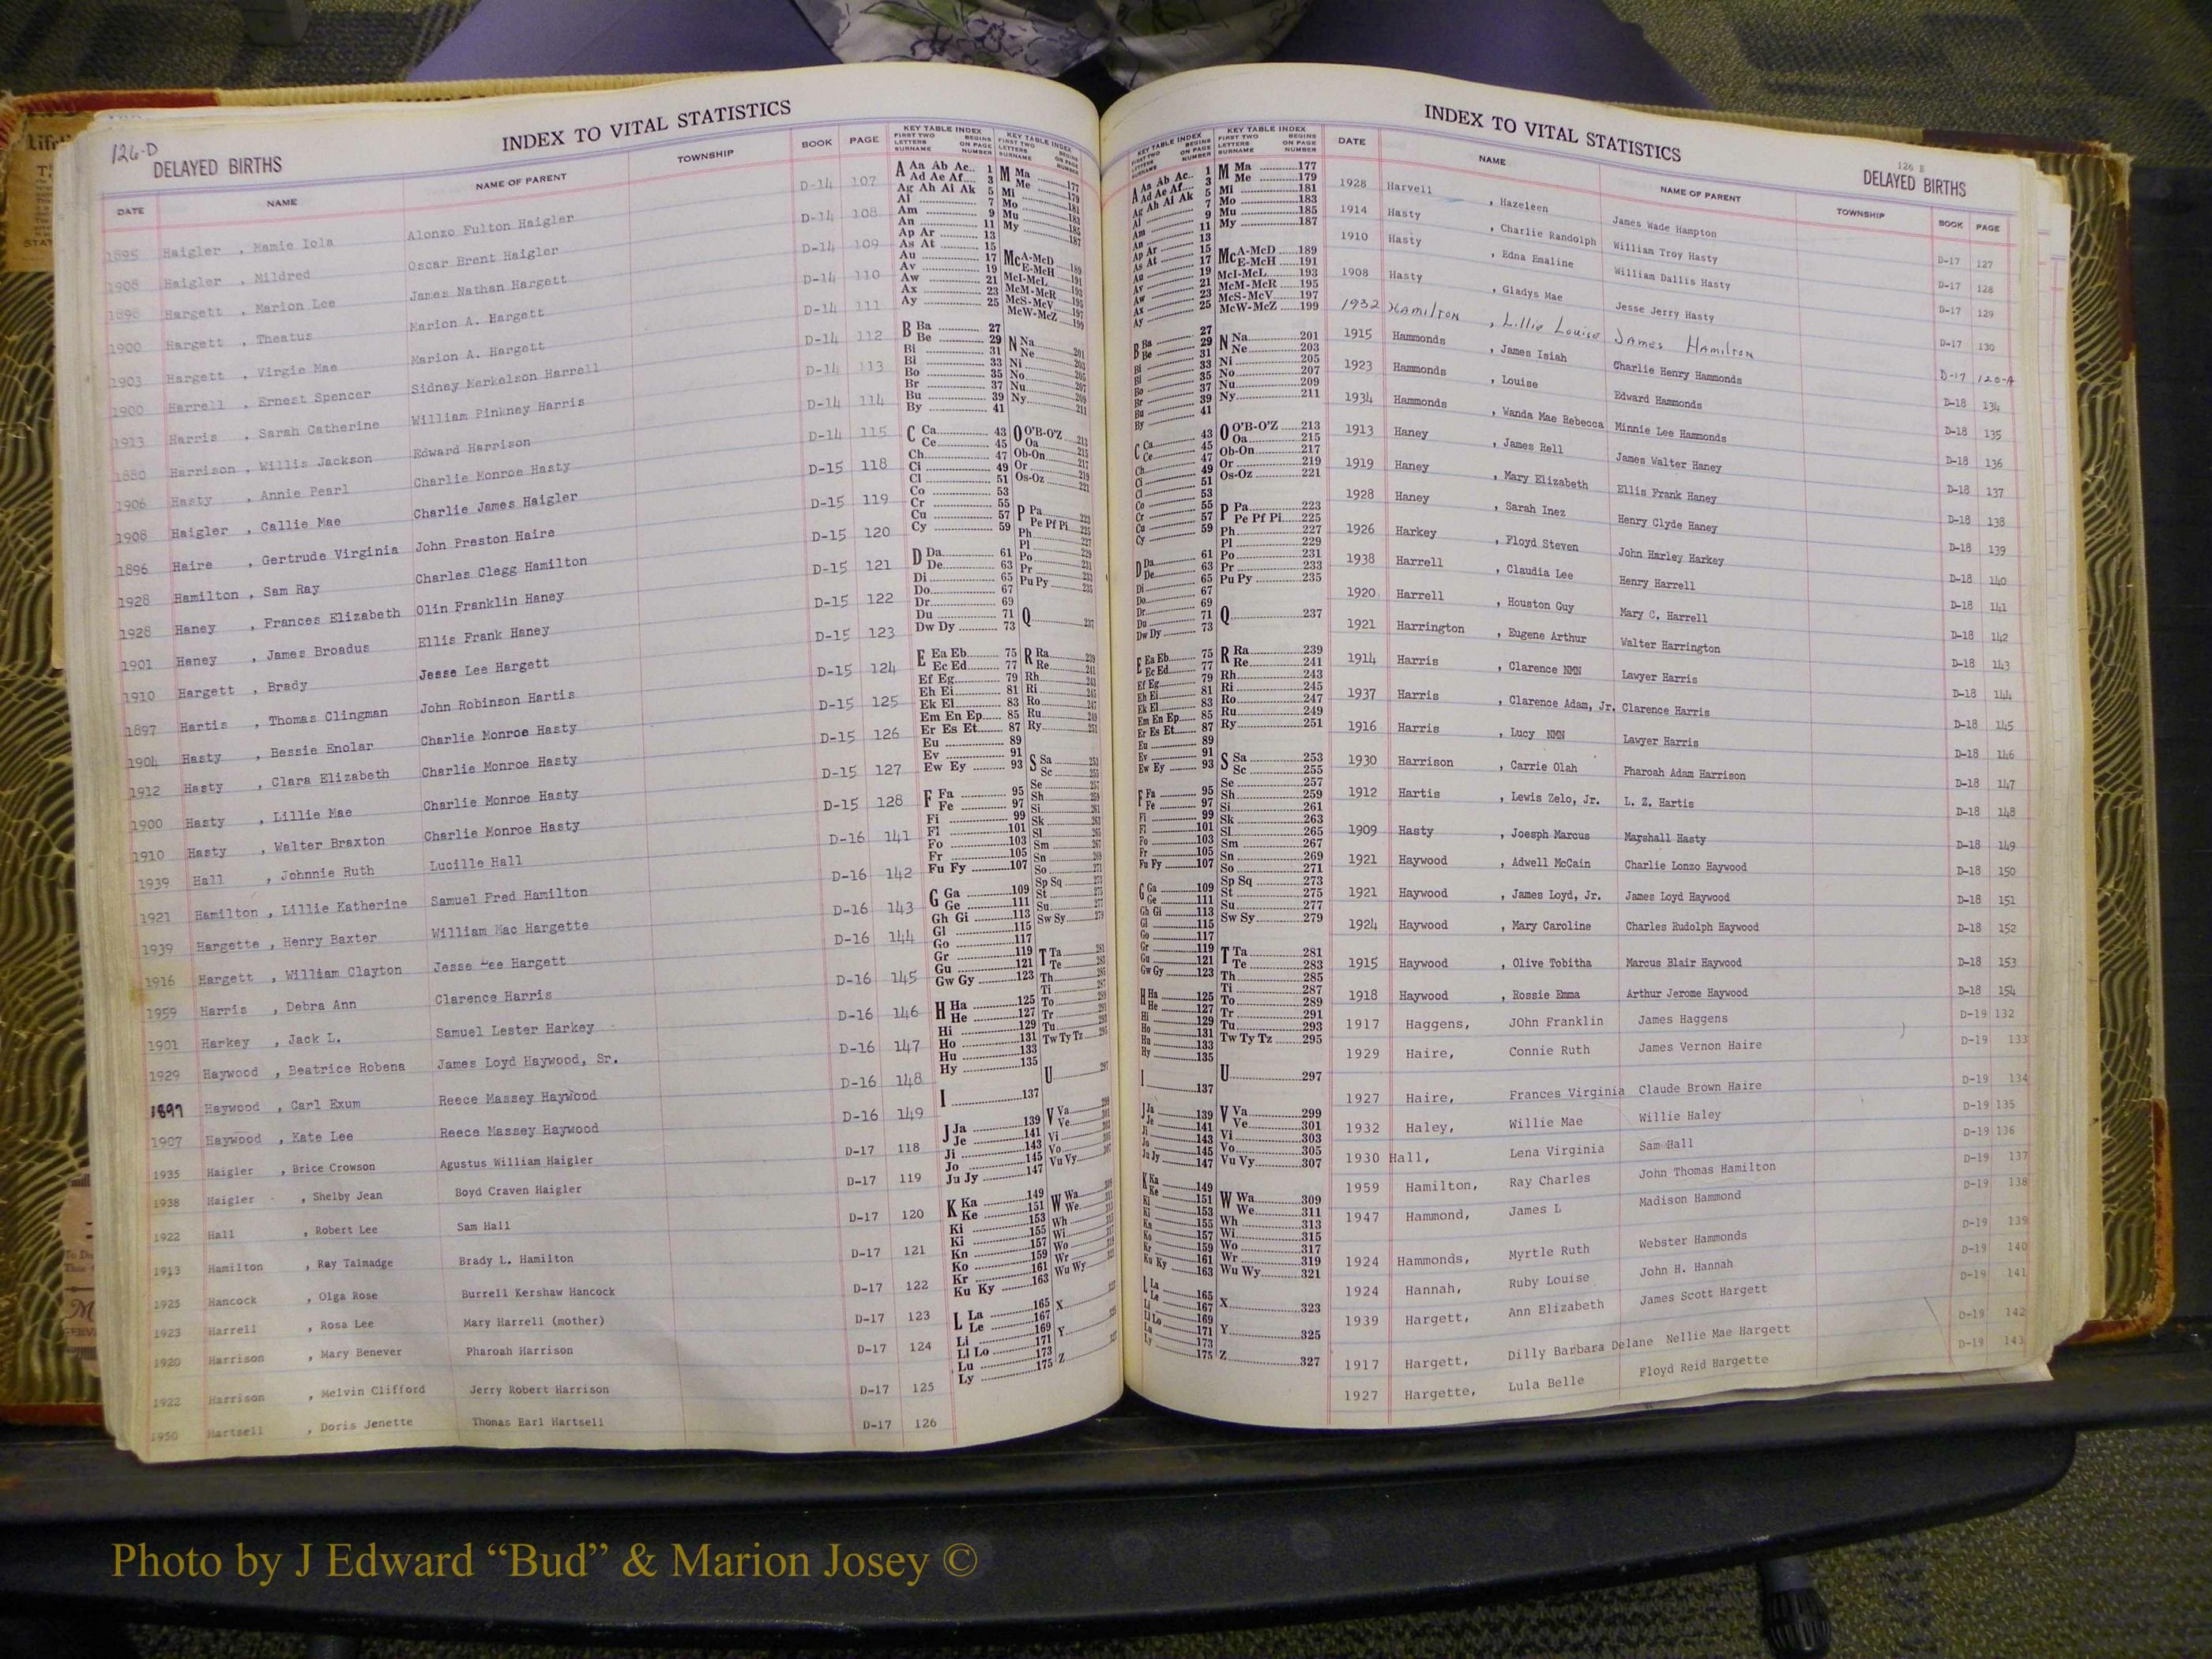 126-D
DELAYED BIRTHS
INDEX TO VITAL STATISTICS
DATE NAME NAME OF PARENT TOWNSHIP BOOK PAGE
1895 Haigler , Mamie Iola Alonzo Fulton Haigler D-14 107
1908 Haigler , Mildred Oscar Brent Haigler D-14 108
1898 Hargett , Marion Lee James Nathan Hargett D-14 109
1900 Hargett , Theatus Marion A. Hargett D-14 110
1903 Hargett , Virgie Mae Marion A. Hargett D-14 111
1900 Harrell , Ernest Spencer Sidney Merkelson Harrell D-14 112
1913 Harris , Sarah Catherine William Pinkney Harris D-14 113
1880 Harrison , Willis Jackson Edward Harrison D-14 114
1906 Hasty , Annie Pearl Charlie Monroe Hasty D-14 115
1908 Haigler , Callie Mae Charlie James Haigler D-15 118
1896 Haire , Gertrude Virginia John Preston Haire D-15 119
1928 Hamilton , Sam Ray Charles Clegg Hamilton D-15 120
1928 Haney , Frances Elizabeth Olin Franklin Haney D-15 121
1901 Haney , James Broadus Ellis Frank Haney D-15 122
1910 Hargett , Brady Jesse Lee Hargett D-15 123
1897 Hartis , Thomas Clingman John Robinson Hartis D-15 124
1904 Hasty , Bessie Enolar Charlie Monroe Hasty D-15 125
1912 Hasty , Clara Elizabeth Charlie Monroe Hasty D-15 126
1900 Hasty , Lillie Mae Charlie Monroe Hasty D-15 127
1910 Hasty , Walter Braxton Charlie Monroe Hasty D-15 128
1939 Hall , Johnnie Ruth Lucille Hall D-16 141
1921 Hamilton , Lillie Katherine Samuel Fred Hamilton D-16 142
1939 Hargette , Henry Baxter William Mac Hargette D-16 143
1916 Hargett , William Clayton Jesse Lee Hargett D-16 144
1959 Harris , Debra Ann Clarence Harris D-16 145
1901 Harkey , Jack L. Samuel Lester Harkey D-16 146
1929 Haywood , Beatrice Robena James Loyd Haywood, Sr. D-16 147
1897 Haywood , Carl Exum Reece Massey Haywood D-16 148
1907 Haywood , Kate Lee Reece Massey Haywood D-16 149
1935 Haigler , Brice Crowson Agustus William Haigler D-17 118
1938 Haigler , Shelby Jean Boyd Craven Haigler D-17 119
1922 Hall , Robert Lee Sam Hall D-17 120
1913 Hamilton , Ray Talmadge Brady L. Hamilton D-17 121
1925 Hancock , Olga Rose Burrell Kershaw Hancock D-17 122
1923 Harrell , Rosa Lee Mary Harrell (mother) D-17 123
1920 Harrison , Mary Benever Pharoah Harrison D-17 124
1922 Harrison , Melvin Clifford Jerry Robert Harrison D-17 125
1950 Hartsell , Doris Jenette Thomas Earl Hartsell D-17 126
KEY TABLE INDEX
FIRST TWO LETTERS SURNAME BEGINS ON PAGE NUMBER
A Aa Ab Ac.. 1
Ad Ae Af.... 3
Ag Ah Ai Ak 5
Al 7
Am 9
An 11
Ap Ar 13
As At 15
Au 17
Av 19
Aw 21
Ax 23
Ay 25
B Ba 27
Be 29
Bi 31
Bl 33
Bo 35
Br 37
Bu 39
By 41
C Ca 43
Ce 45
Ch 47
Ci 49
Cl 51
Co 53
Cr 55
Cu 57
Cy 59
D Da 61
De 63
Di 65
Do 67
Dr 69
Du 71
Dw Dy 73
E Ea Eb 75
Ec Ed 77
Ef Eg 79
Eh Ei 81
Ek El 83
Em En Ep 85
Er Es Et 87
Eu 89
Ev 91
Ew Ey 93
F Fa 95
Fe 97
Fi 99
Fl 101
Fo 103
Fr 105
Fu Fy 107
G Ga 109
Ge 111
Gh Gi 113
Gl 115
Go 117
Gr 119
Gu 121
Gw Gy 123
H Ha 125
He 127
Hi 129
Ho 131
Hu 133
Hy 135
I 137
J Ja 139
Je 141
Ji 143
Jo 145
Ju Jy 147
K Ka 149
Ke 151
Ki 153
Ki 155
Kn 157
Ko 159
Kr 161
Ku Ky 163
L La 165
Le 167
Li 169
Ll Lo 171
Lu 173
Ly 175
INDEX TO VITAL STATISTICS
126 E
DELAYED BIRTHS
KEY TABLE INDEX
FIRST TWO LETTERS SURNAME BEGINS ON PAGE NUMBER
M Ma 177
Me 179
Mi 181
Mo 183
Mu 185
My 187
Mc A-McD 189
E-McH 191
McI-McL 193
McM-McR 195
McS-McV 197
McW-McZ 199
N Na 201
Ne 203
Ni 205
No 207
Nu 209
Ny 211
O O'B-O'Z 213
Oa 215
Ob-On 217
Or 219
Os-Oz 221
P Pa 223
Pe Pf Pi 225
Ph 227
Pl 229
Po 231
Pr 233
Pu Py 235
Q 237
R Ra 239
Re 241
Rh 243
Ri 245
Ro 247
Ru 249
Ry 251
S Sa 253
Sc 255
Se 257
Sh 259
Si 261
Sk 263
Sl 265
Sm 267
Sn 269
So 271
Sp Sq 273
St 275
Su 277
Sw Sy 279
T Ta 281
Te 283
Th 285
Ti 287
To 289
Tr 291
Tu 293
Tw Ty Tz 295
U 297
V Va 299
Ve 301
Vi 303
Vo 305
Vu Vy 307
W Wa 309
We 311
Wh 313
Wi 315
Wo 317
Wr 319
Wu Wy 321
X 323
Y 325
Z 327
DATE NAME NAME OF PARENT TOWNSHIP BOOK PAGE
1928 Harvell , Hazeleen James Wade Hampton D-17 127
1914 Hasty , Charlie Randolph William Troy Hasty D-17 128
1910 Hasty , Edna Emaline William Dallis Hasty D-17 129
1908 Hasty , Gladys Mae Jesse Jerry Hasty D-17 130
1932 Hamilton , Lillie Louise James Hamilton D-17 120-A
1915 Hammonds , James Isiah Charlie Henry Hammonds D-18 134
1923 Hammonds , Louise Edward Hammonds D-18 135
1934 Hammonds , Wanda Mae Rebecca Minnie Lee Hammonds D-18 136
1913 Haney , James Rell James Walter Haney D-18 137
1919 Haney , Mary Elizabeth Ellis Frank Haney D-18 138
1928 Haney , Sarah Inez Henry Clyde Haney D-18 139
1926 Harkey , Floyd Steven John Harley Harkey D-18 140
1938 Harrell , Claudia Lee Henry Harrell D-18 141
1920 Harrell , Houston Guy Mary C. Harrell D-18 142
1921 Harrington , Eugene Arthur Walter Harrington D-18 143
1914 Harris , Clarence NMN Lawyer Harris D-18 144
1937 Harris , Clarence Adam, Jr. Clarence Harris D-18 145
1916 Harris , Lucy NMN Lawyer Harris D-18 146
1930 Harrison , Carrie Olah Pharoah Adam Harrison D-18 147
1912 Hartis , Lewis Zelo, Jr. L. Z. Hartis D-18 148
1909 Hasty , Joesph Marcus Marshall Hasty D-18 149
1921 Haywood , Adwell McCain Charlie Lonzo Haywood D-18 150
1921 Haywood , James Loyd, Jr. James Loyd Haywood D-18 151
1924 Haywood , Mary Caroline Charles Rudolph Haywood D-18 152
1915 Haywood , Olive Tobitha Marcus Blair Haywood D-18 153
1918 Haywood , Rossie Emma Arthur Jerome Haywood D-18 154
1917 Haggens, JOhn Franklin James Haggens D-19 132
1929 Haire, Connie Ruth James Vernon Haire D-19 133
1927 Haire, Frances Virginia Claude Brown Haire D-19 134
1932 Haley, Willie Mae Willie Haley D-19 135
1930 Hall, Lena Virginia Sam Hall D-19 136
1959 Hamilton, Ray Charles John Thomas Hamilton D-19 137
1947 Hammond, James L Madison Hammond D-19 138
1924 Hammonds, Myrtle Ruth Webster Hammonds D-19 139
1924 Hannah, Ruby Louise John H. Hannah D-19 140
1939 Hargett, Ann Elizabeth James Scott Hargett D-19 141
1917 Hargett, Dilly Barbara Delane Nellie Mae Hargett D-19 142
1927 Hargette, Lula Belle Floyd Reid Hargette D-19 143
Photo by J Edward “Bud” & Marion Josey ©